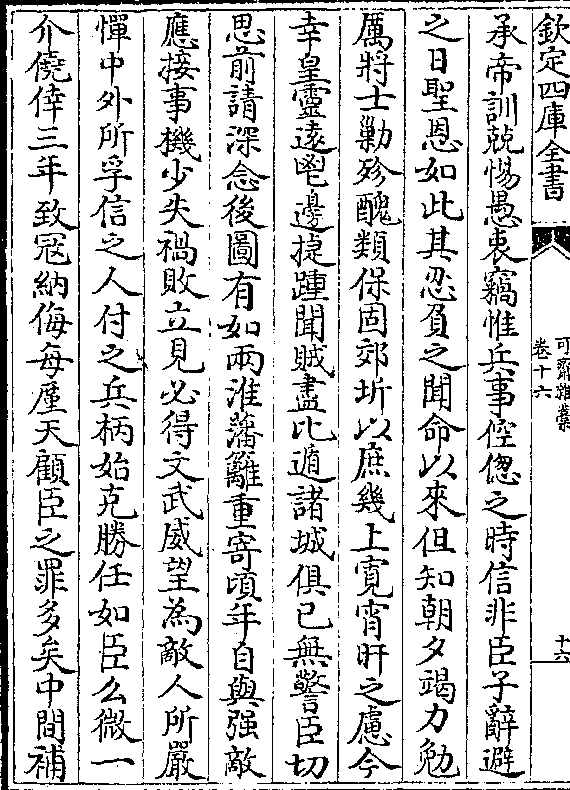 欽定四庫全書
可齋雜藁
卷十六
十六
承帝訓兢惕愚衷竊惟兵事倥偬之時信非臣子辭避
之日聖恩如此其忍負之聞命以來但知朝夕竭力勉
厲將士勦殄醜類保固郊圻以庶幾上寛宵旰之慮今
幸皇靈遠鬯邊捷踵聞賊盡北遁諸城俱已無警臣切
思前請深念後圖有如兩淮藩籬重寄頃年自與强敵
應接事機少失禍敗立見必得文武威望為敵人所嚴
憚中外所孚信之人付之兵柄始克勝任如臣么微一
介僥倖三年致冦納侮每廑天顧臣之罪多矣中間補